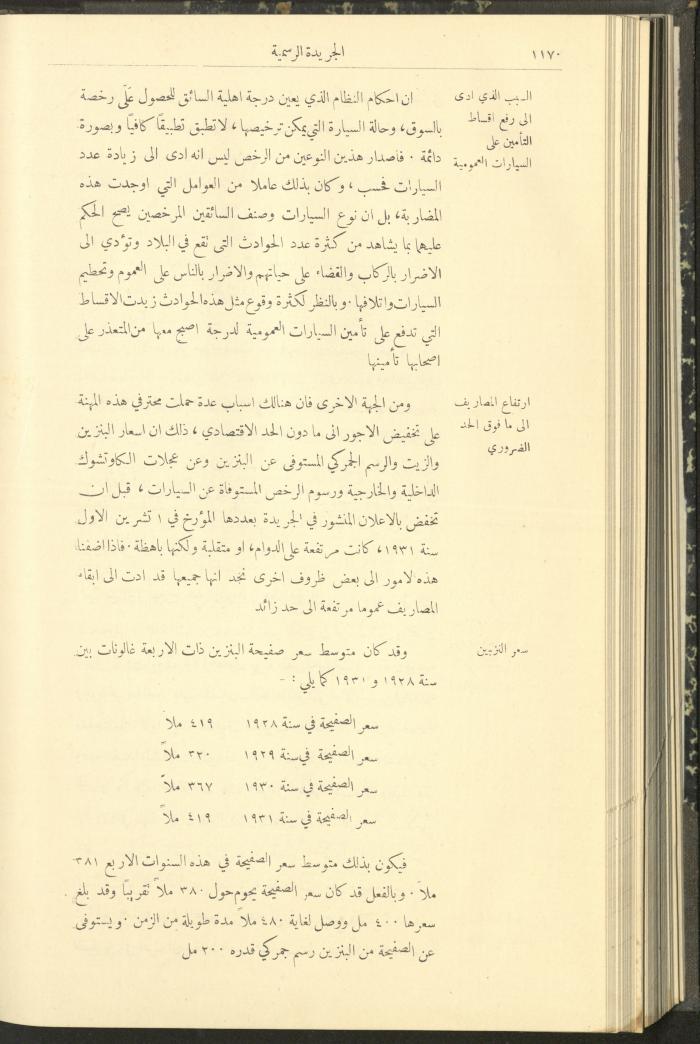 ١١٧٠
الجريدة الرسمية
السبب الذي ادى
الى رفع اقساط
التأمين على
السيارات العمومية
ان احكام النظام الذي يعين درجة اهلية السائق للحصول على رخصة
بالسوق، وحالة السيارة التي يمكن ترخيصها، لا تطبق تطبيقًا كافيًا وبصورة
دائمة . فاصدار هذين النوعين من الرخص ليس انه ادى الى زيادة عدد
السيارات فحسب، وكان بذلك عاملا من العوامل التي اوجدت هذه
المضاربة، بل ان نوع السيارات وصنف السائقين المرخصين يصح الحكم
عليهما بما يشاهد من كثرة عدد الحوادث التي تقع في البلاد وتؤدي الى
الاضرار بالركاب والقضاء على حياتهم والاضرار بالناس على العموم وتحطيم
السيارات واتلافها . وبالنظر لكثرة وقوع مثل هذه الحوادث زيدت الاقساط
التي تدفع على تأمين السيارات العمومية لدرجة اصبح معها من المتعذر على
اصحابها تأمينها
ارتفاع المصاريف
الى ما فوق الحد
الضروري
ومن الجهة الاخرى فان هنالك اسباب عدة حملت محترفي هذه المهنة
على تخفيض الاجور الى ما دون الحد الاقتصادي، ذلك ان اسعار البنزين
والزيت والرسم الجمركي المستوفى عن البنزين وعن عجلات الكاوتشوك
الداخلية والخارجية ورسوم الرخص المستوفاة عن السيارات، قبل ان
تخفض بالاعلان المنشور في الجريدة بعددها المؤرخ في ١ تشرين الاول
سنة ١٩٣١، كانت مرتفعة على الدوام، او متقلبة ولكنها باهظة . فاذا اضفنا
هذه لامور الى بعض ظروف اخرى نجد انها جميعها قد ادت الى ابقاء
المصاريف عموما مرتفعة الى حد زائد
سعر النزبين
وقد كان متوسط سعر صفيحة البنزين ذات الاربعة غالونات بين
سنة ١٩٢٨ و ١٩٣١ كما يلي : -
سعر الصفيحة في سنة ١٩٢٨ ٤١٩ ملا
سعر الصفيحة في سنة ١٩٢٩ ٣٢٠ ملاً
سعر الصفيحة في سنة ١٩٣٠ ٣٦٧ ملاً
سعر الصفيحة في سنة ١٩٣١ ٤١٩ ملاً
فيكون بذلك متوسط سعر الصفيحة في هذه السنوات الاربع ٣٨١
ملاً . وبالفعل قد كان سعر الصفيحة يحوم حول ٣٨٠ ملاً تقريبًا وقد بلغ
سعرها ٤٠٠ مل ووصل لغاية ٤٨٠ ملاً مدة طويلة من الزمن . ويستوفى
عن الصفيحة من البنزين رسم جمركي قدره ٢٠٠ مل